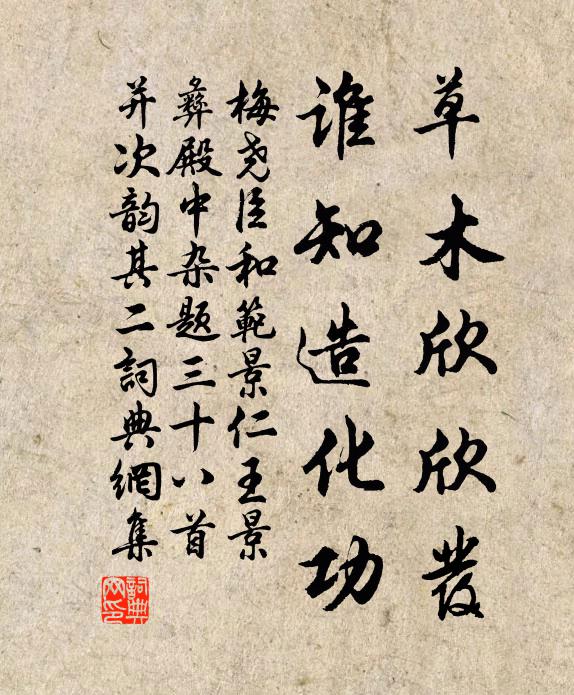 草木欣欣發
谁知造化功
梅尧臣和範景仁王景
彝殿中杂题三十八首
并次韵其二詞典網集
詞典
网印